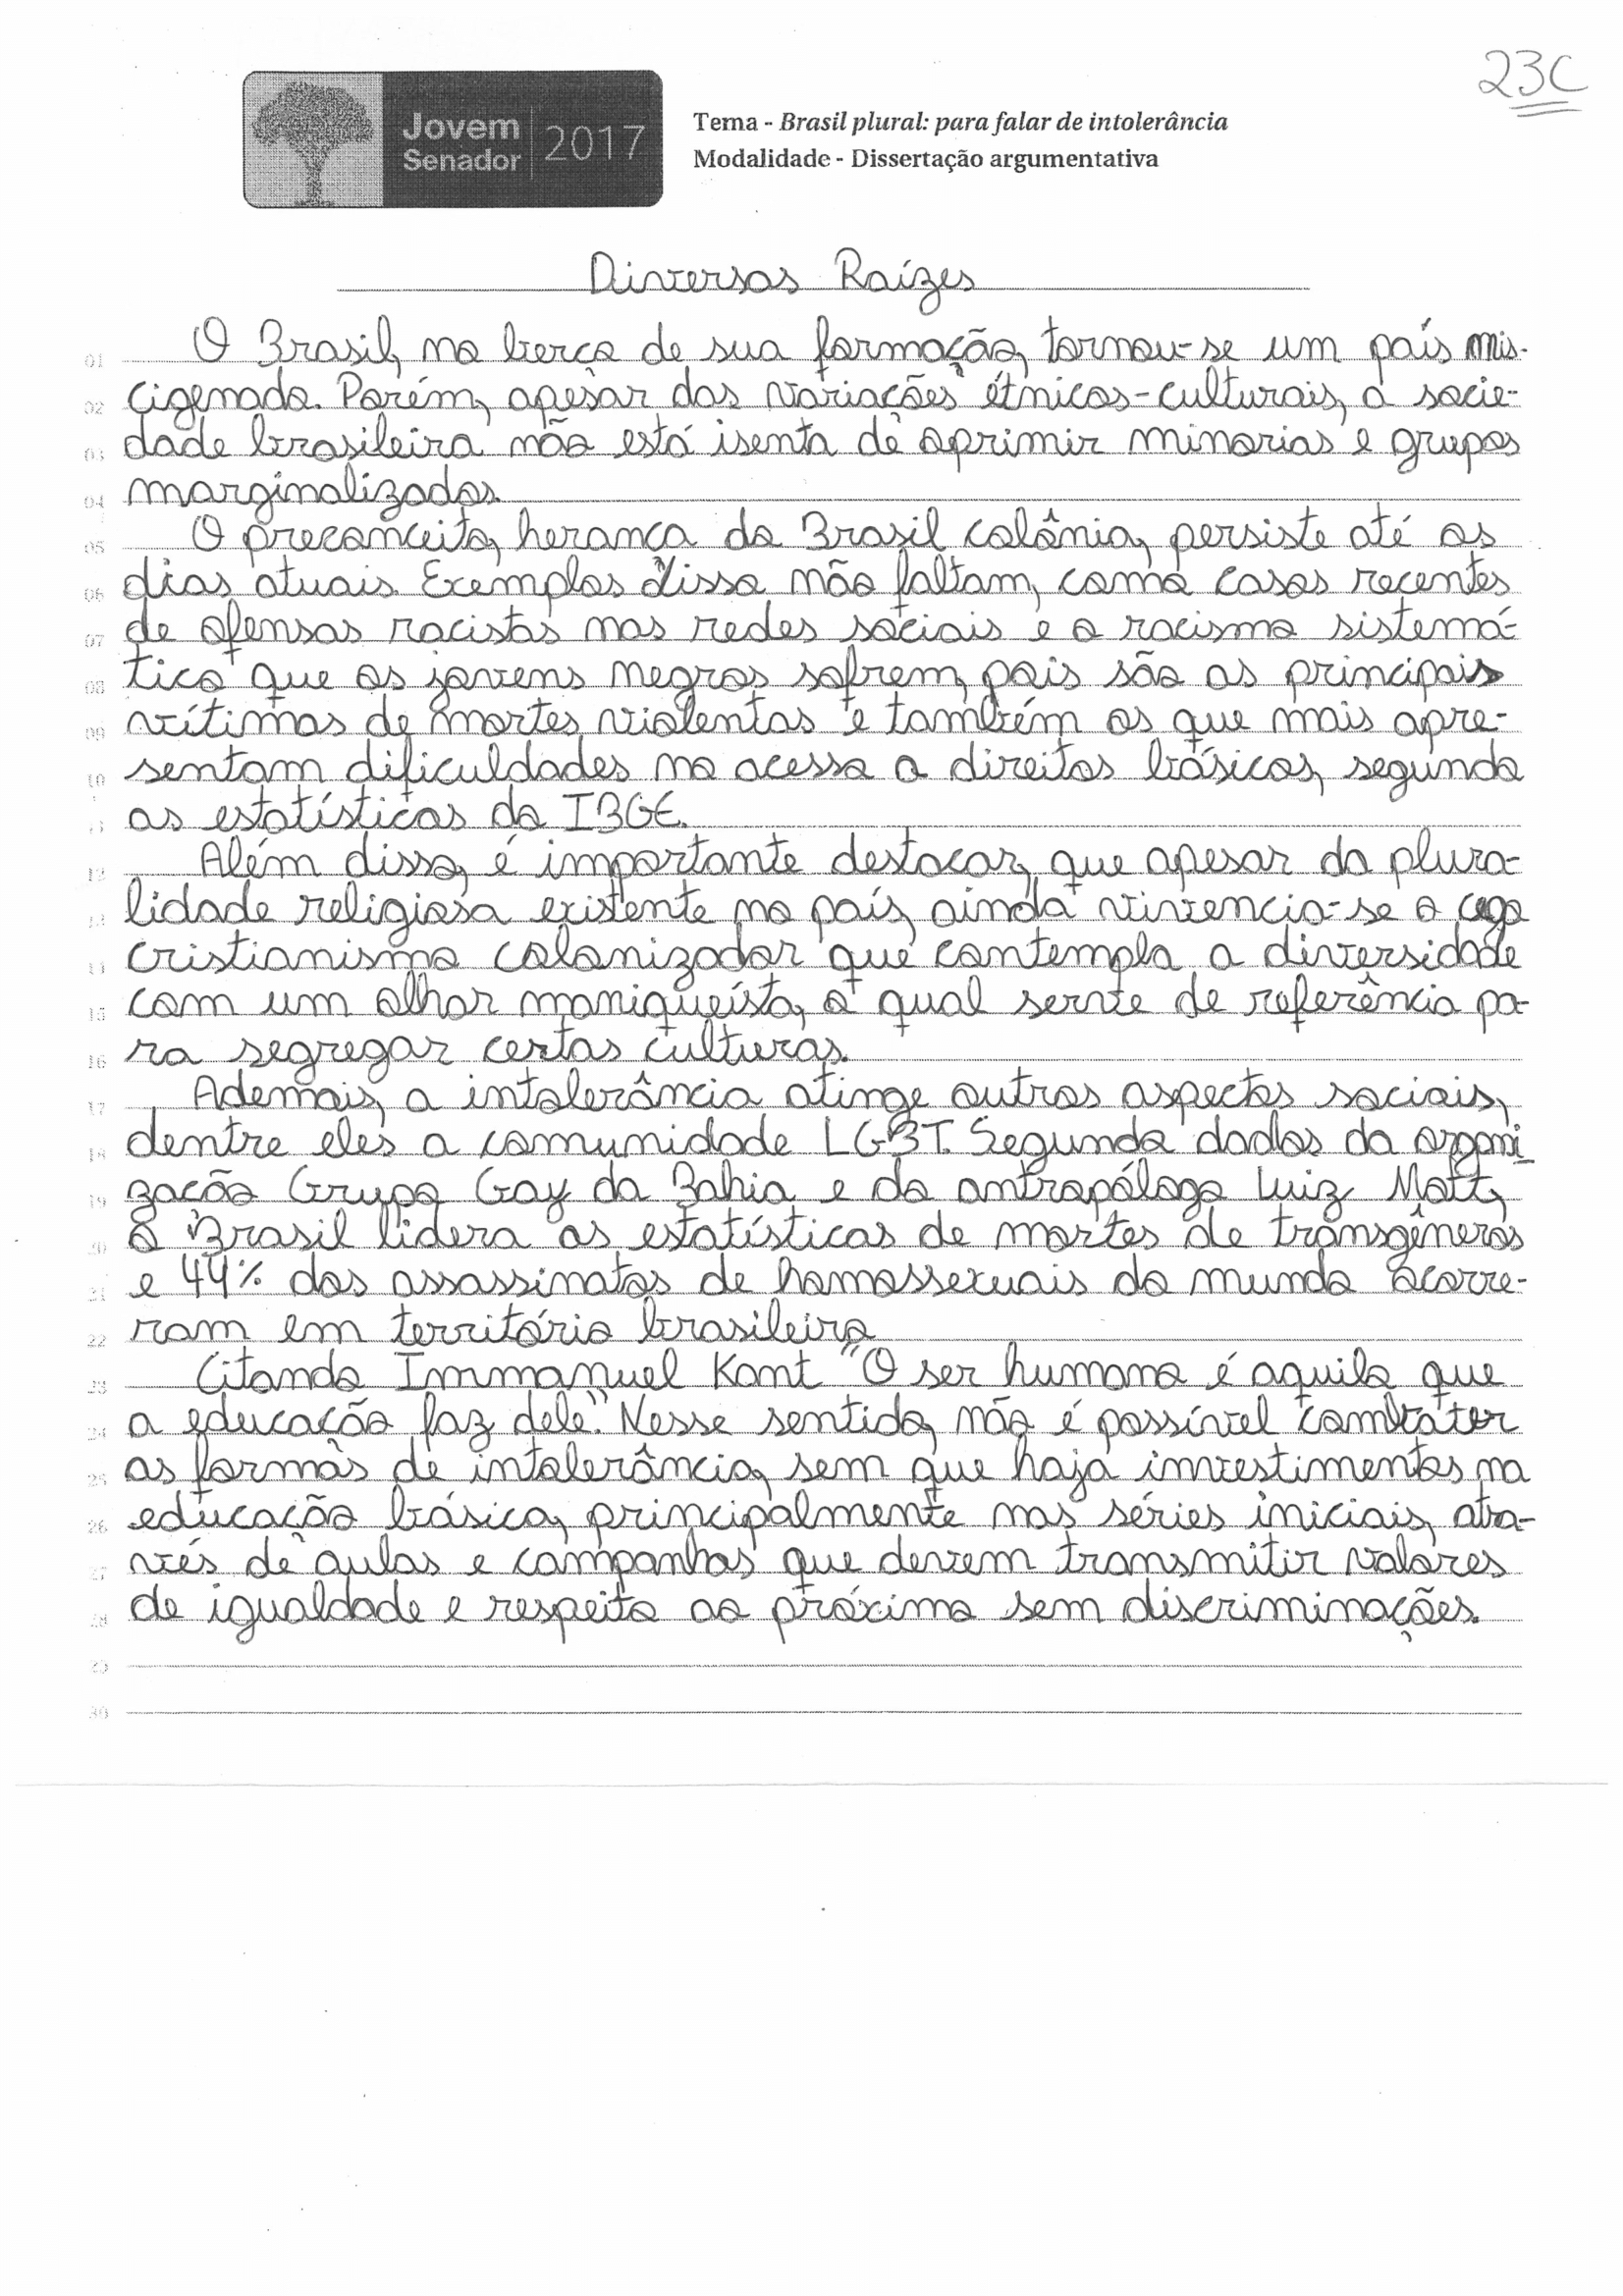 23C
Jovem
Senador
2017
Tema - Brasil plural: para falar de intolerância
Modalidade - Dissertação argumentativa
Diversas Raízes
01 O Brasil, no berço de sua formação, tornou-se um país mis-
02 cigenado. Porém, apesar das variações étnicas-culturais, a socie-
03 dade brasileira não está isenta de oprimir minorias e grupos
04 marginalizados.
05 O preconceito, herança do Brasil colônia, persiste até os
06 dias atuais. Exemplos disso não faltam, como casos recentes
07 de ofensas racistas nas redes sociais e o racismo sistemá-
08 tico que os jovens negros sofrem, pois são as principais
09 vítimas de mortes violentas e também os que mais apre-
10 sentam dificuldades no acesso a direitos básicos, segundo
11 as estatísticas do IBGE.
12 Além disso, é importante destacar, que apesar da plura-
13 lidade religiosa existente no país, ainda vivencia-se o cego
14 cristianismo colonizador que contempla a diversidade
15 com um olhar maniqueísta, o qual serve de referência pa-
16 ra segregar certas culturas.
17 Ademais, a intolerância atinge outros aspectos sociais,
18 dentre eles a comunidade LGBT. Segundo dados da organi
19 zação Grupo Gay da Bahia e do antropólogo Luiz Mott,
20 o Brasil lidera as estatísticas de mortes de transgêneros
21 e 44% dos assassinatos de homossexuais do mundo ocorre-
22 ram em território brasileiro
23 Citando Immanuel Kant "O ser humano é aquilo que
24 a educação faz dele". Nesse sentido, não é possível combater
25 as formas de intolerância, sem que haja investimentos na
26 educação básica, principalmente nas séries iniciais, atra-
27 vés de aulas e campanhas que devem transmitir valores
28 de igualdade e respeito ao próximo sem discriminações.
29
30